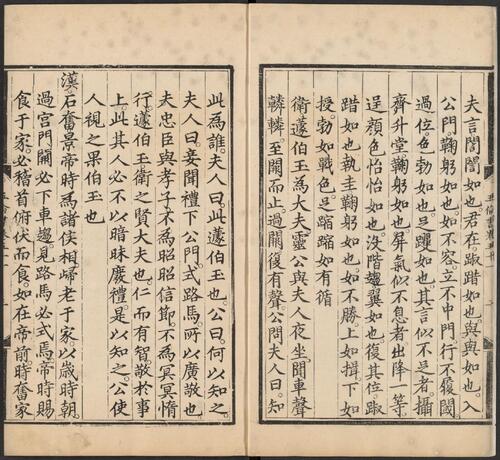 夫言誾誾如也。君在踧踖如也。與與如也。入
公門。鞠躬如也。如不容。立不中門。行不履閾。
過位。色勃如也。足躩如也。其言似不足者。攝
齊升堂。鞠躬如也。屏氣似不息者。出降一等。
逞顏色。怡怡如也。沒階趨。翼如也。復其位。踧
踖如也。執圭鞠躬如也。如不勝。上如揖。下如
授。勃如戰色。足蹜蹜如有循
衛蘧伯玉為大夫。靈公與夫人夜坐。聞車聲
轔轔。至闕而止。過闕復有聲。公問夫人曰。知
此為誰。夫人曰。此蘧伯玉也。公曰。何以知之。
夫人曰。妾聞禮下公門。式路馬。所以廣敬也
夫忠臣與孝子。不為昭昭信節。不為冥冥惰
行。蘧伯玉。衛之賢大夫也。仁而有智。敬於事
上。此其人必不以暗昧廢禮。是以知之。公使
人視之。果伯玉也
漢石奮。景帝時為諸侯相。歸老于家。以歲時朝。
過宮門闕。必下車趨。見路馬必式焉。帝時賜
食于家。必稽首俯伏而食。如在帝前。時奮家